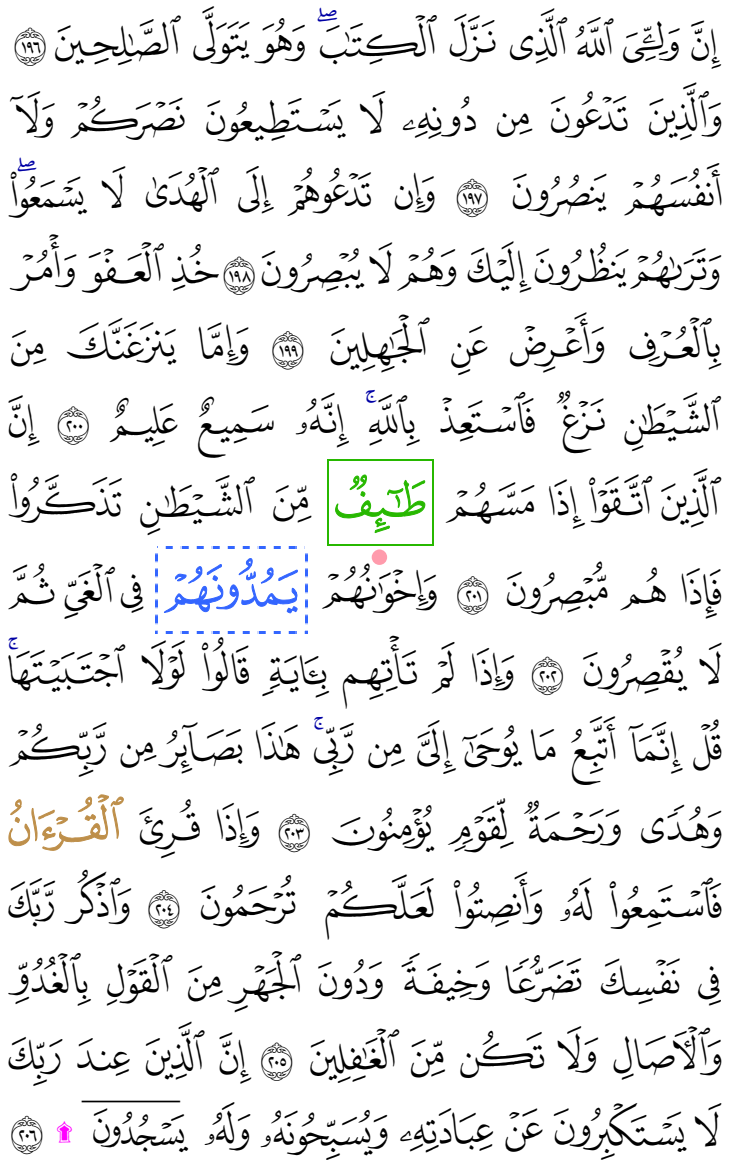 إِنَّ وَلِـِّۧيَ ٱللَّهُ ٱلَّذِى نَزَّلَ ٱلْكِتَٰبَ ۖ وَهُوَ يَتَوَلَّى ٱلصَّٰلِحِينَ ١٩٦
وَٱلَّذِينَ تَدْعُونَ مِن دُونِهِۦ لَا يَسْتَطِيعُونَ نَصْرَكُمْ وَلَآ
أَنفُسَهُمْ يَنصُرُونَ ١٩٧ وَإِن تَدْعُوهُمْ إِلَى ٱلْهُدَىٰ لَا يَسْمَعُوا۟ ۖ
وَتَرَىٰهُمْ يَنظُرُونَ إِلَيْكَ وَهُمْ لَا يُبْصِرُونَ ١٩٨ خُذِ ٱلْعَفْوَ وَأْمُرْ
بِٱلْعُرْفِ وَأَعْرِضْ عَنِ ٱلْجَٰهِلِينَ ١٩٩ وَإِمَّا يَنزَغَنَّكَ مِنَ
ٱلشَّيْطَٰنِ نَزْغٌ فَٱسْتَعِذْ بِٱللَّهِ ۚ إِنَّهُۥ سَمِيعٌ عَلِيمٌ ٢٠٠ إِنَّ
ٱلَّذِينَ ٱتَّقَوْا۟ إِذَا مَسَّهُمْ طَٰٓئِفٌ مِّنَ ٱلشَّيْطَٰنِ تَذَكَّرُوا۟
فَإِذَا هُم مُّبْصِرُونَ ٢٠١ وَإِخْوَٰنُهُمْ يَمُدُّونَهُمْ فِى ٱلْغَىِّ ثُمَّ
لَا يُقْصِرُونَ ٢٠٢ وَإِذَا لَمْ تَأْتِهِم بِـَٔايَةٍ قَالُوا۟ لَوْلَا ٱجْتَبَيْتَهَا ۚ
قُلْ إِنَّمَآ أَتَّبِعُ مَا يُوحَىٰٓ إِلَىَّ مِن رَّبِّى ۚ هَٰذَا بَصَآئِرُ مِن رَّبِّكُمْ
وَهُدًى وَرَحْمَةٌ لِّقَوْمٍ يُؤْمِنُونَ ٢٠٣ وَإِذَا قُرِئَ ٱلْقُرْءَانُ
فَٱسْتَمِعُوا۟ لَهُۥ وَأَنصِتُوا۟ لَعَلَّكُمْ تُرْحَمُونَ ٢٠٤ وَٱذْكُر رَّبَّكَ
فِى نَفْسِكَ تَضَرُّعًا وَخِيفَةً وَدُونَ ٱلْجَهْرِ مِنَ ٱلْقَوْلِ بِٱلْغُدُوِّ
وَٱلْـَٔاصَالِ وَلَا تَكُن مِّنَ ٱلْغَٰفِلِينَ ٢٠٥ إِنَّ ٱلَّذِينَ عِندَ رَبِّكَ
لَا يَسْتَكْبِرُونَ عَنْ عِبَادَتِهِۦ وَيُسَبِّحُونَهُۥ وَلَهُۥ يَسْجُدُونَ ۩ ٢٠٦